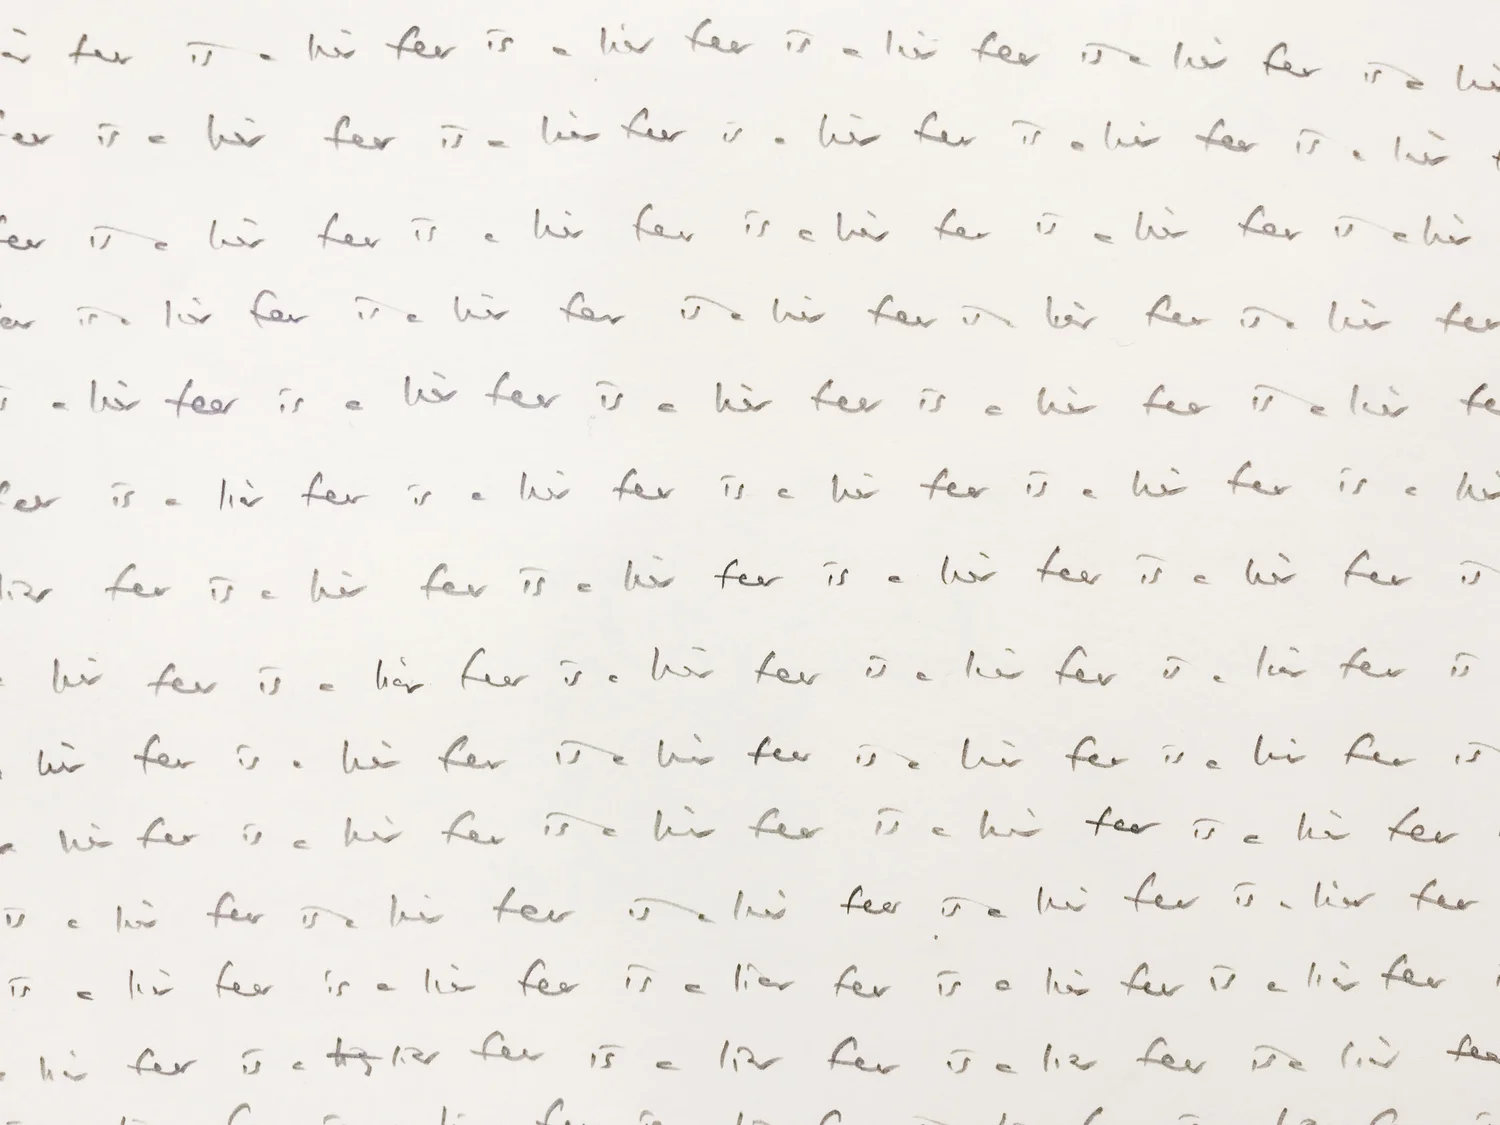 fear is a liar fear is a liar fear is a liar fear is a liar fear is a
fear is a liar fear is a liar fear is a liar fear is a liar fear is a liar
fear is a liar fear is a liar fear is a liar fear is a liar fear is a liar
is a liar fear is a liar fear is a liar fear is a liar fear is a liar fear
a liar fear is a liar fear is a liar fear is a liar fear is a liar
fear is a liar fear is a liar fear is a liar fear is a liar fear is a
liar fear is a liar fear is a liar fear is a liar fear is a liar fear is
liar fear is a liar fear is a liar fear is a liar fear is a liar fear is
liar fear is a liar fear is a liar fear is a liar fear is a liar fear is
liar fear is a liar fear is a liar fear is a liar fear is a liar fear
is a liar fear is a liar fear is a liar fear is a liar fear is a liar fear
is a liar fear is a liar fear is a liar fear is a liar fear is a liar fear
a liar fear is a liar fear is a liar fear is a liar fear is a liar fear